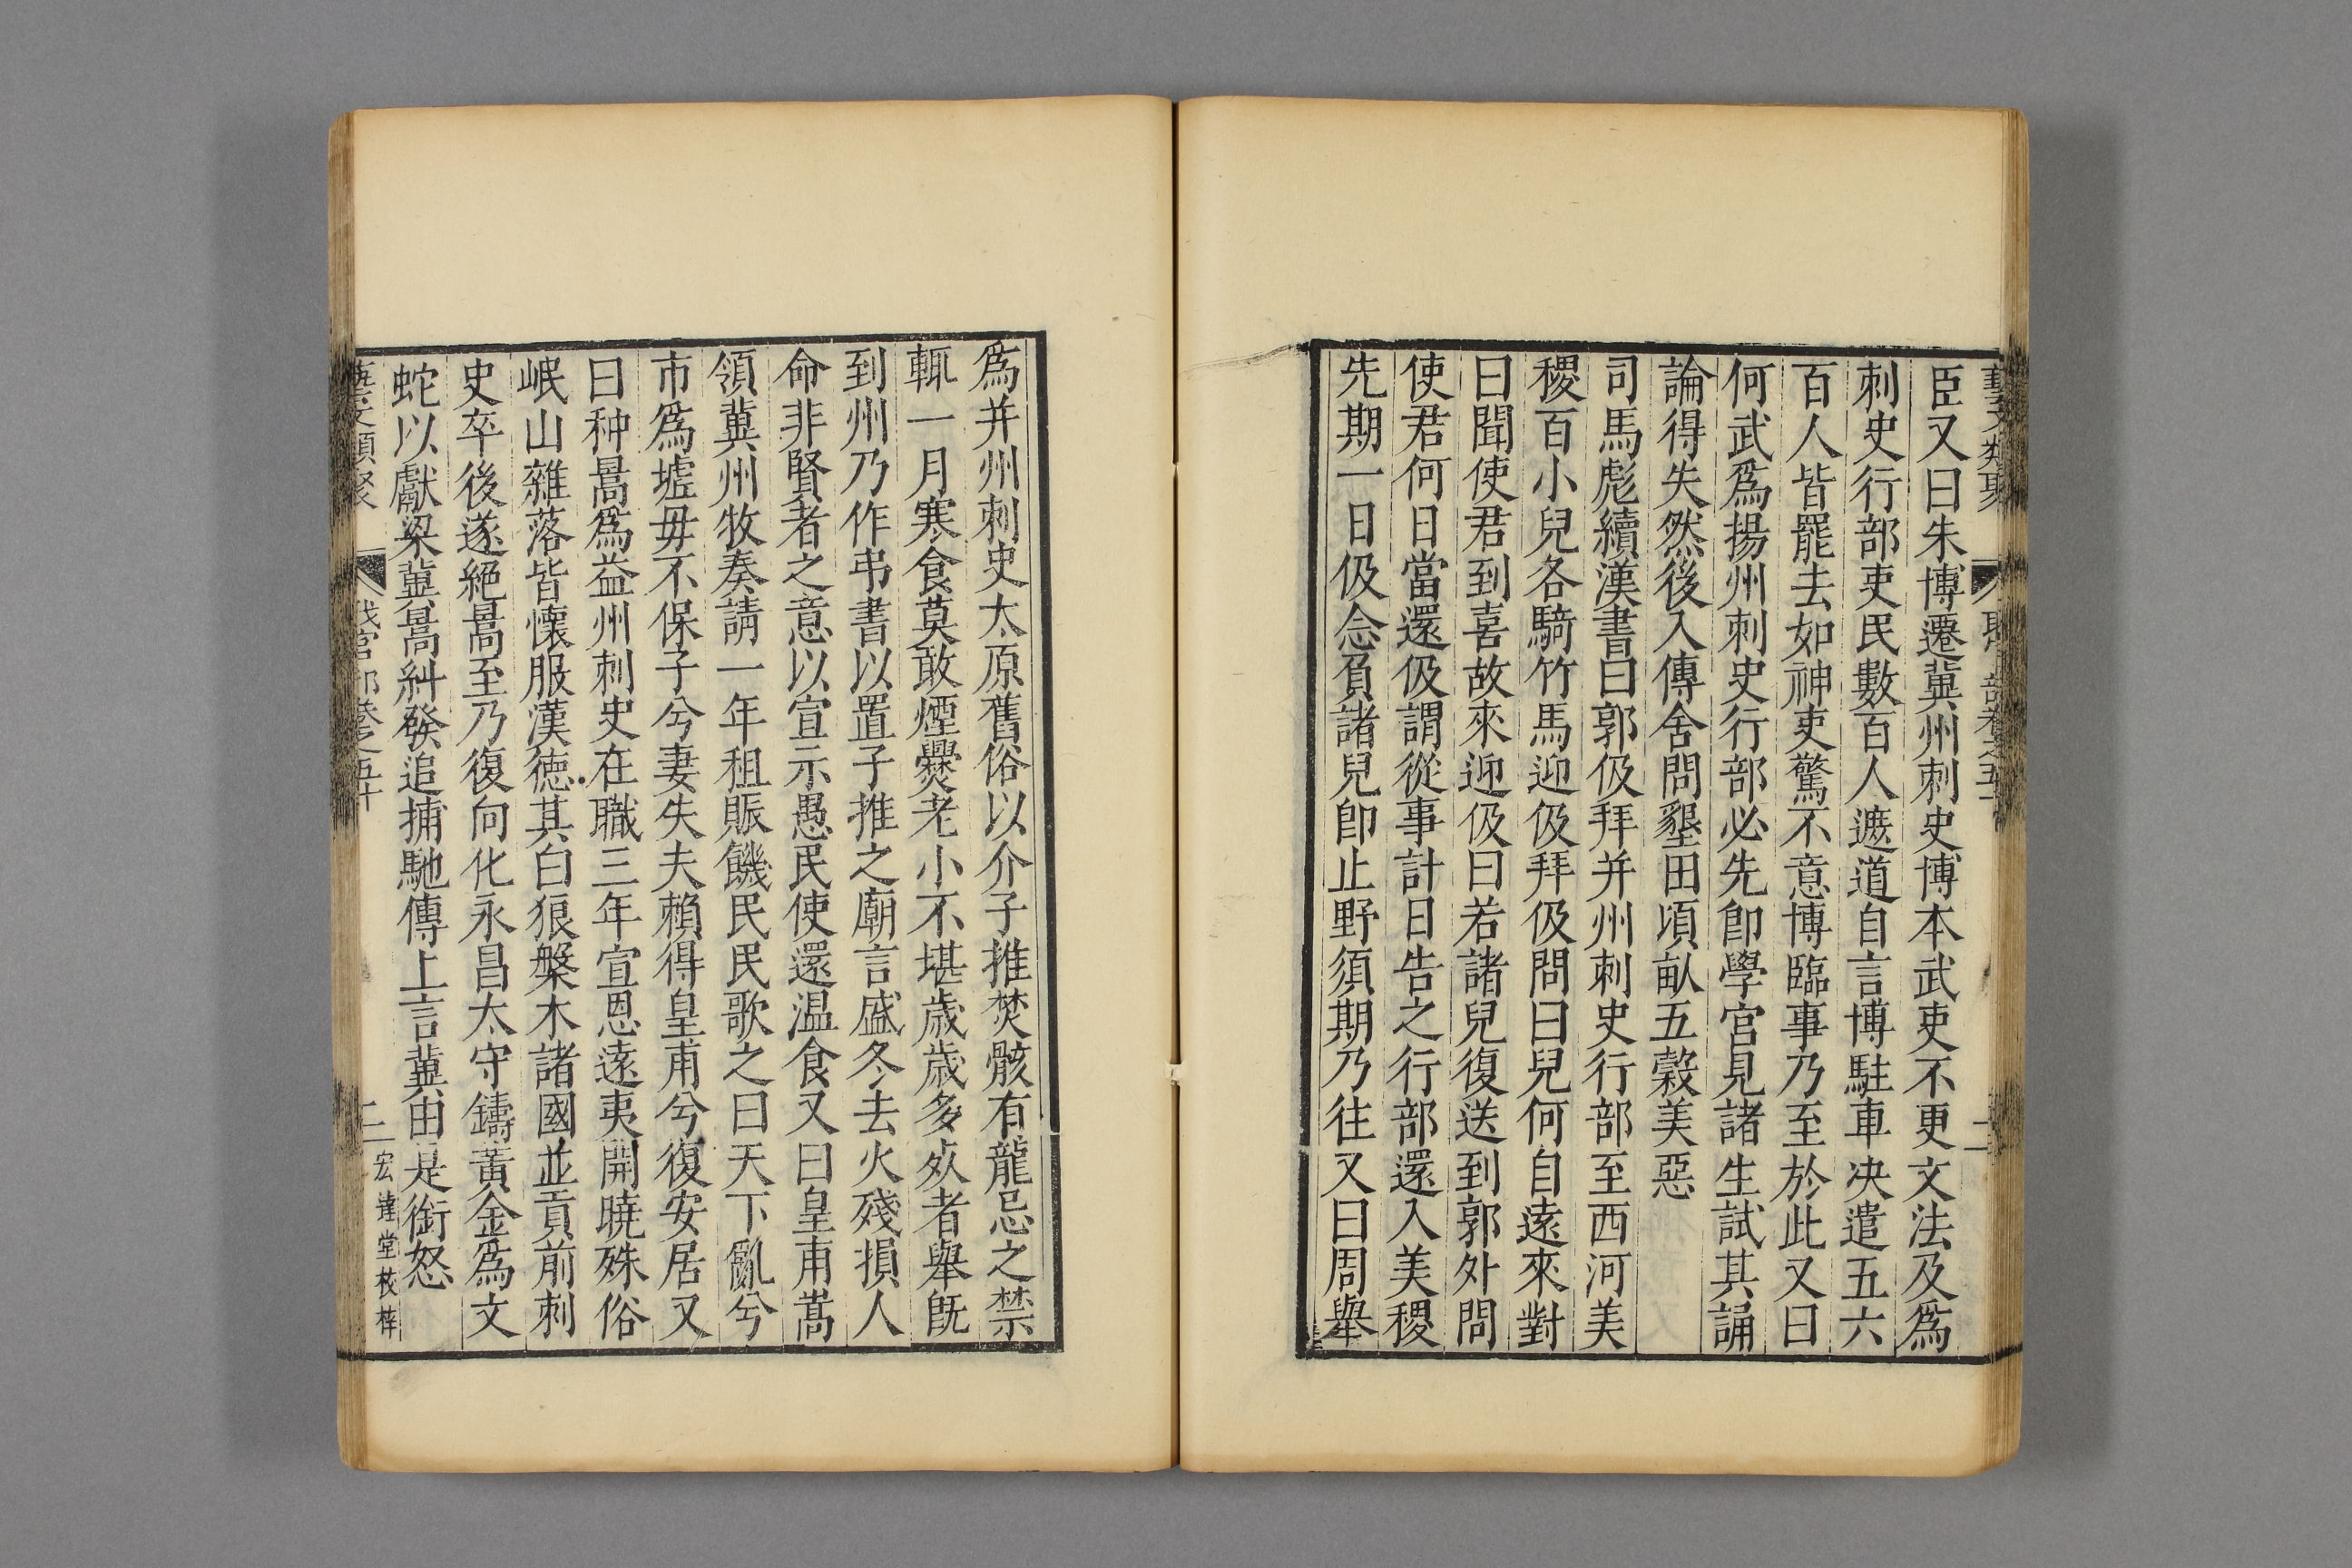 臣又曰朱博遷冀州刺史博本武吏不更文法及爲
刺史行部吏民數百人遮道自言博駐車决遣五六
百人皆罷去如神吏驚不意博臨事乃至於此又曰
何武爲揚州刺史行部必先卽學宫見諸生試其誦
論得失然後入傳舍問墾田頃畝五穀美惡
司馬彪續漢書曰郭伋拜并州刺史行部至西河美
稷百小兒各騎竹馬迎伋拜伋問曰兒何自遠來對
曰聞使君到喜故來迎伋曰若諸兒復送到郭外問
使君何日當還伋謂從事計日告之行部還入美稷
先期一日伋念負諸兒卽止野須期乃往又曰周舉
爲并州刺史太原舊俗以介子推焚骸有龍忌之禁
輒一月寒食莫敢煙爨老小不堪歲歲多歿者舉旣
到州乃作弔書以置子推之廟言盛冬去火殘損人
命非賢者之意以宣示愚民使還温食又曰皇甫嵩
領冀州牧奏請一年租賑饑民民歌之曰天下亂兮
市爲墟毋不保子兮妻失夫賴得皇甫兮復安居又
曰种暠爲益州刺史在職三年宣恩遠夷開曉殊俗
岷山雜落皆懷服漢德其白狼槃木諸國並貢前刺
史卒後遂絕暠至乃復向化永昌太守鑄黃金爲文
蛇以獻梁冀暠糾發追捕馳傳上言冀由是銜怒
藝文類聚 卷之五十 二 宏達堂校梓